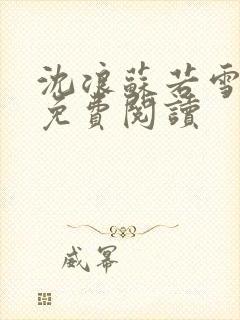 沈浪蘇若雪
免費閱讀
威冪